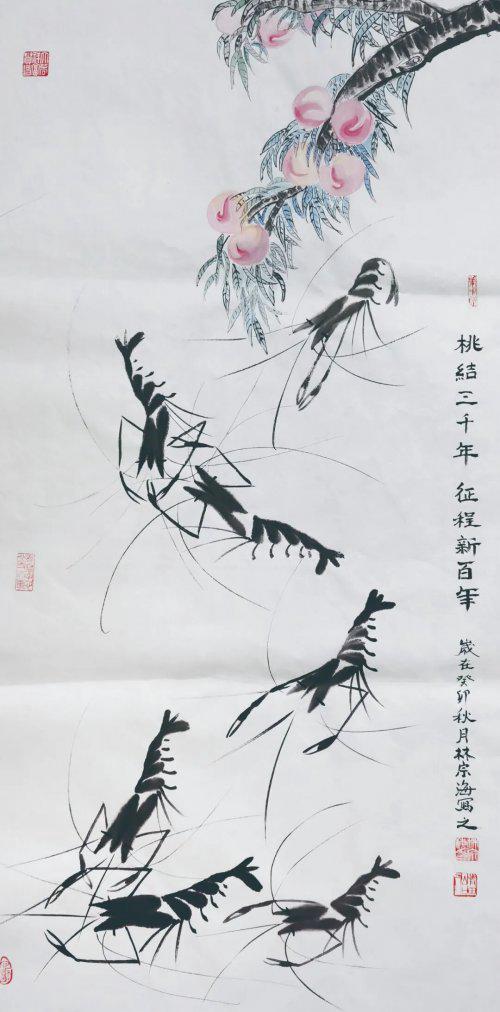 桃結三千年 征程新百年
歲在癸卯秋月林宗海寫之